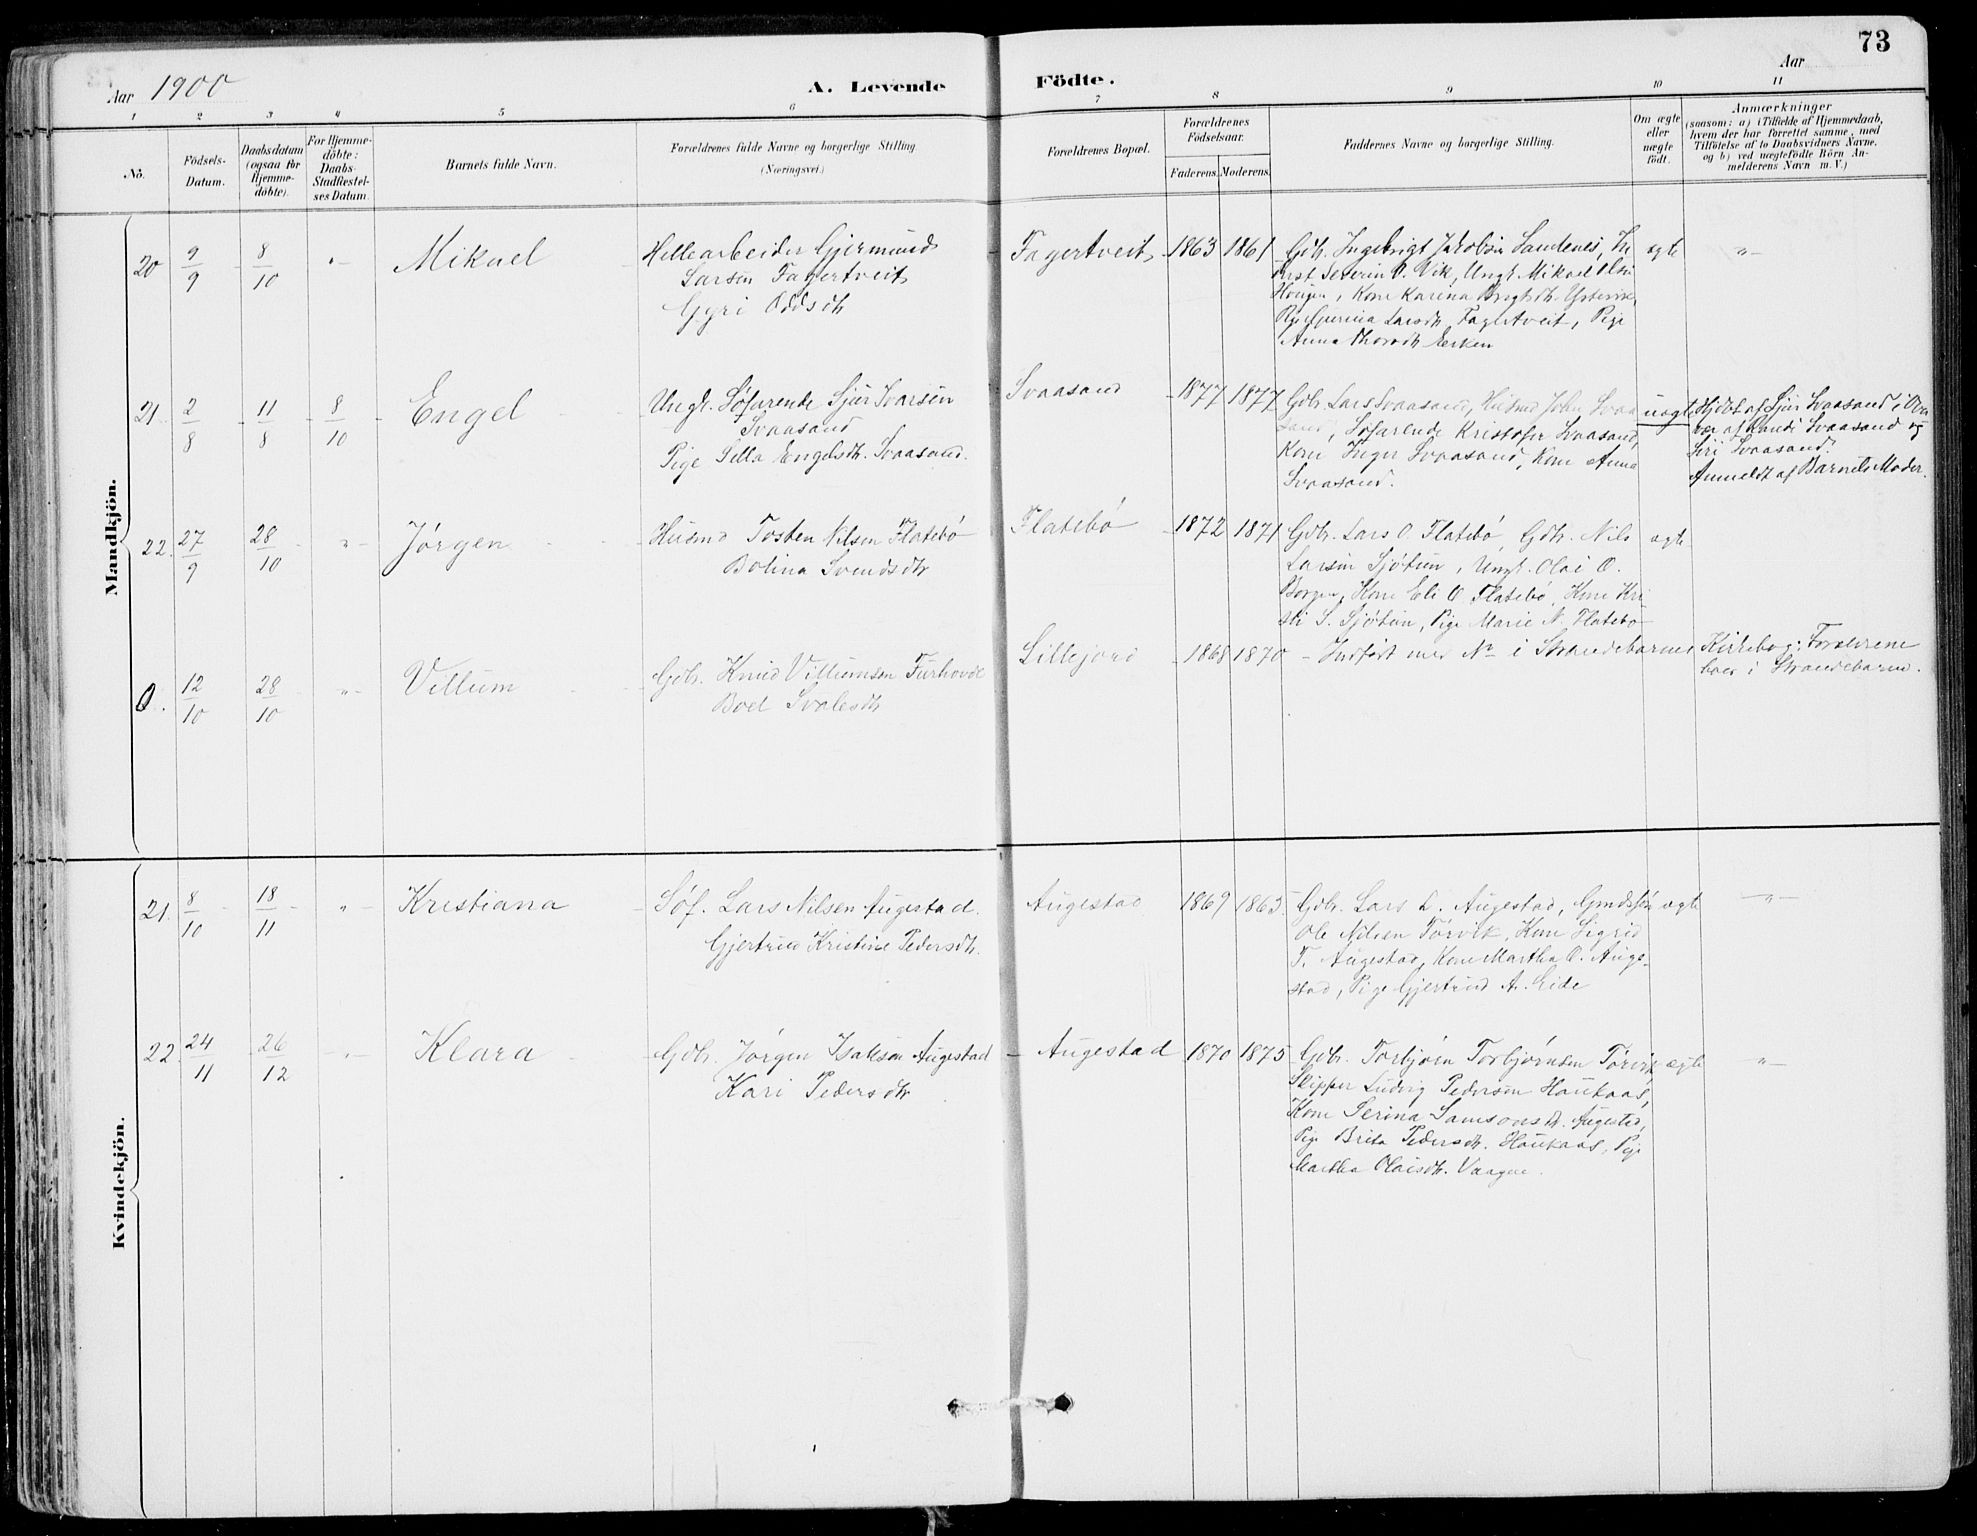 73
Aar 1900
A. Levende Födte.
Aar
1 2 3 4 5 6 7 8 9 10 11
No.
Födsels-Datum.
Daabsdatum (ogsaa for Hjemme-döbte).
For Hjemme-döbte: Daabs-Stadfæstel-ses Datum.
Barnets fulde Navn.
Forældrenes fulde Navne og borgerlige Stilling.
(Næringsvei.)
Forældrenes Bopæl.
Forældrenes Födselsaar.
Faderens. Moderens.
Faddernes Navne og borgerlige Stilling.
Om ægte eller uægte födt.
Anmærkninger
(saasom: a) i Tilfælde af Hjemmedaab,
hvem der har forrettet samme, med
Tilföielse af to Daabsvidners Navne,
og b) ved uægtefödte Börn An-
melderens Navn m. V.)
Mandkjön.
20 9/9 8/10 " Mikael
Hellearbeider Gjermund
Larsen Fagertveit
Gyri Oddsdtr
Fagertveit 1863 1861
Gdbr. Ingebrigt Jakobsen Sandenes,
Severin O. Vik, Ungk. Mikael Olsen
Kone Karina
Larsdtr. Fagertveit, Pige
Anna
ægte "
21. 2/8 11/8 8/10 Engel
Ungk. Søfarende Sjur Ivarsen
Svaasand
Pige Silla Engelsdtr. Svaasand.
Svaasand 1877 1877
Gdbr. Lars Svaasand, Husmd John Svaa
sand, Søfarende Kristofer Svaasand,
Kone Inger Svaasand, Kone Anna
Svaasand.
uægte
Hjdbt af Sjur Svaasand i Over
vær af Svaasand og
Siri Svaasand.
Anmeldt af Barnets Moder.
22. 27/9 28/10 " Jørgen
Husmd Tosten Nilsen Flatebø
Bolina Svendsdtr
Flatebø 1872 1871
Gdbr. Lars O. Flatebø, Gdbr. Nils
Larsen Sjøtun, Ungk. Olai O.
Borgen, Kone Eli O. Flatebø, Kone Kri-
sti S. Sjøtun, Pige Marie N. Flatebø
ægte
0. 12/10 28/10 " Villum
Gdbr. Knud Villumsen Furhovde
Boel
Lillejord 1868 1870
Indført med No i Strandebarms Kirkebog: Forældrene
boer i Strandebarm.
Kvindekjön.
21. 8/10 18/11 " Kristiana
Søf. Lars Nilsen Augestad
Gjertrud Kristine Pedersdtr.
Augestad 1869 1865
Gdbr. Lars L. Augestad, Gmdsøn
Ole Nilsen Tørvik, Kone Sigrid
T. Augestad, Kone Martha O. Auge-
stad, Pige Gjertrud A. Eide
ægte "
22. 24/11 26/12 " Klara
Gdbr. Jørgen Isaksen Augestad
Kari Pedersdtr
Augestad 1870 1875
Gdbr. Torbjørn Torbjørnsen Tørvik,
Skipper Ludvig Pedersen Haukaas,
Kone Serina Samsonsdtr. Augestad,
Pige Brita Pedersdtr. Haukaas, Pige
Martha Olaisdtr. Vaagen.
ægte "